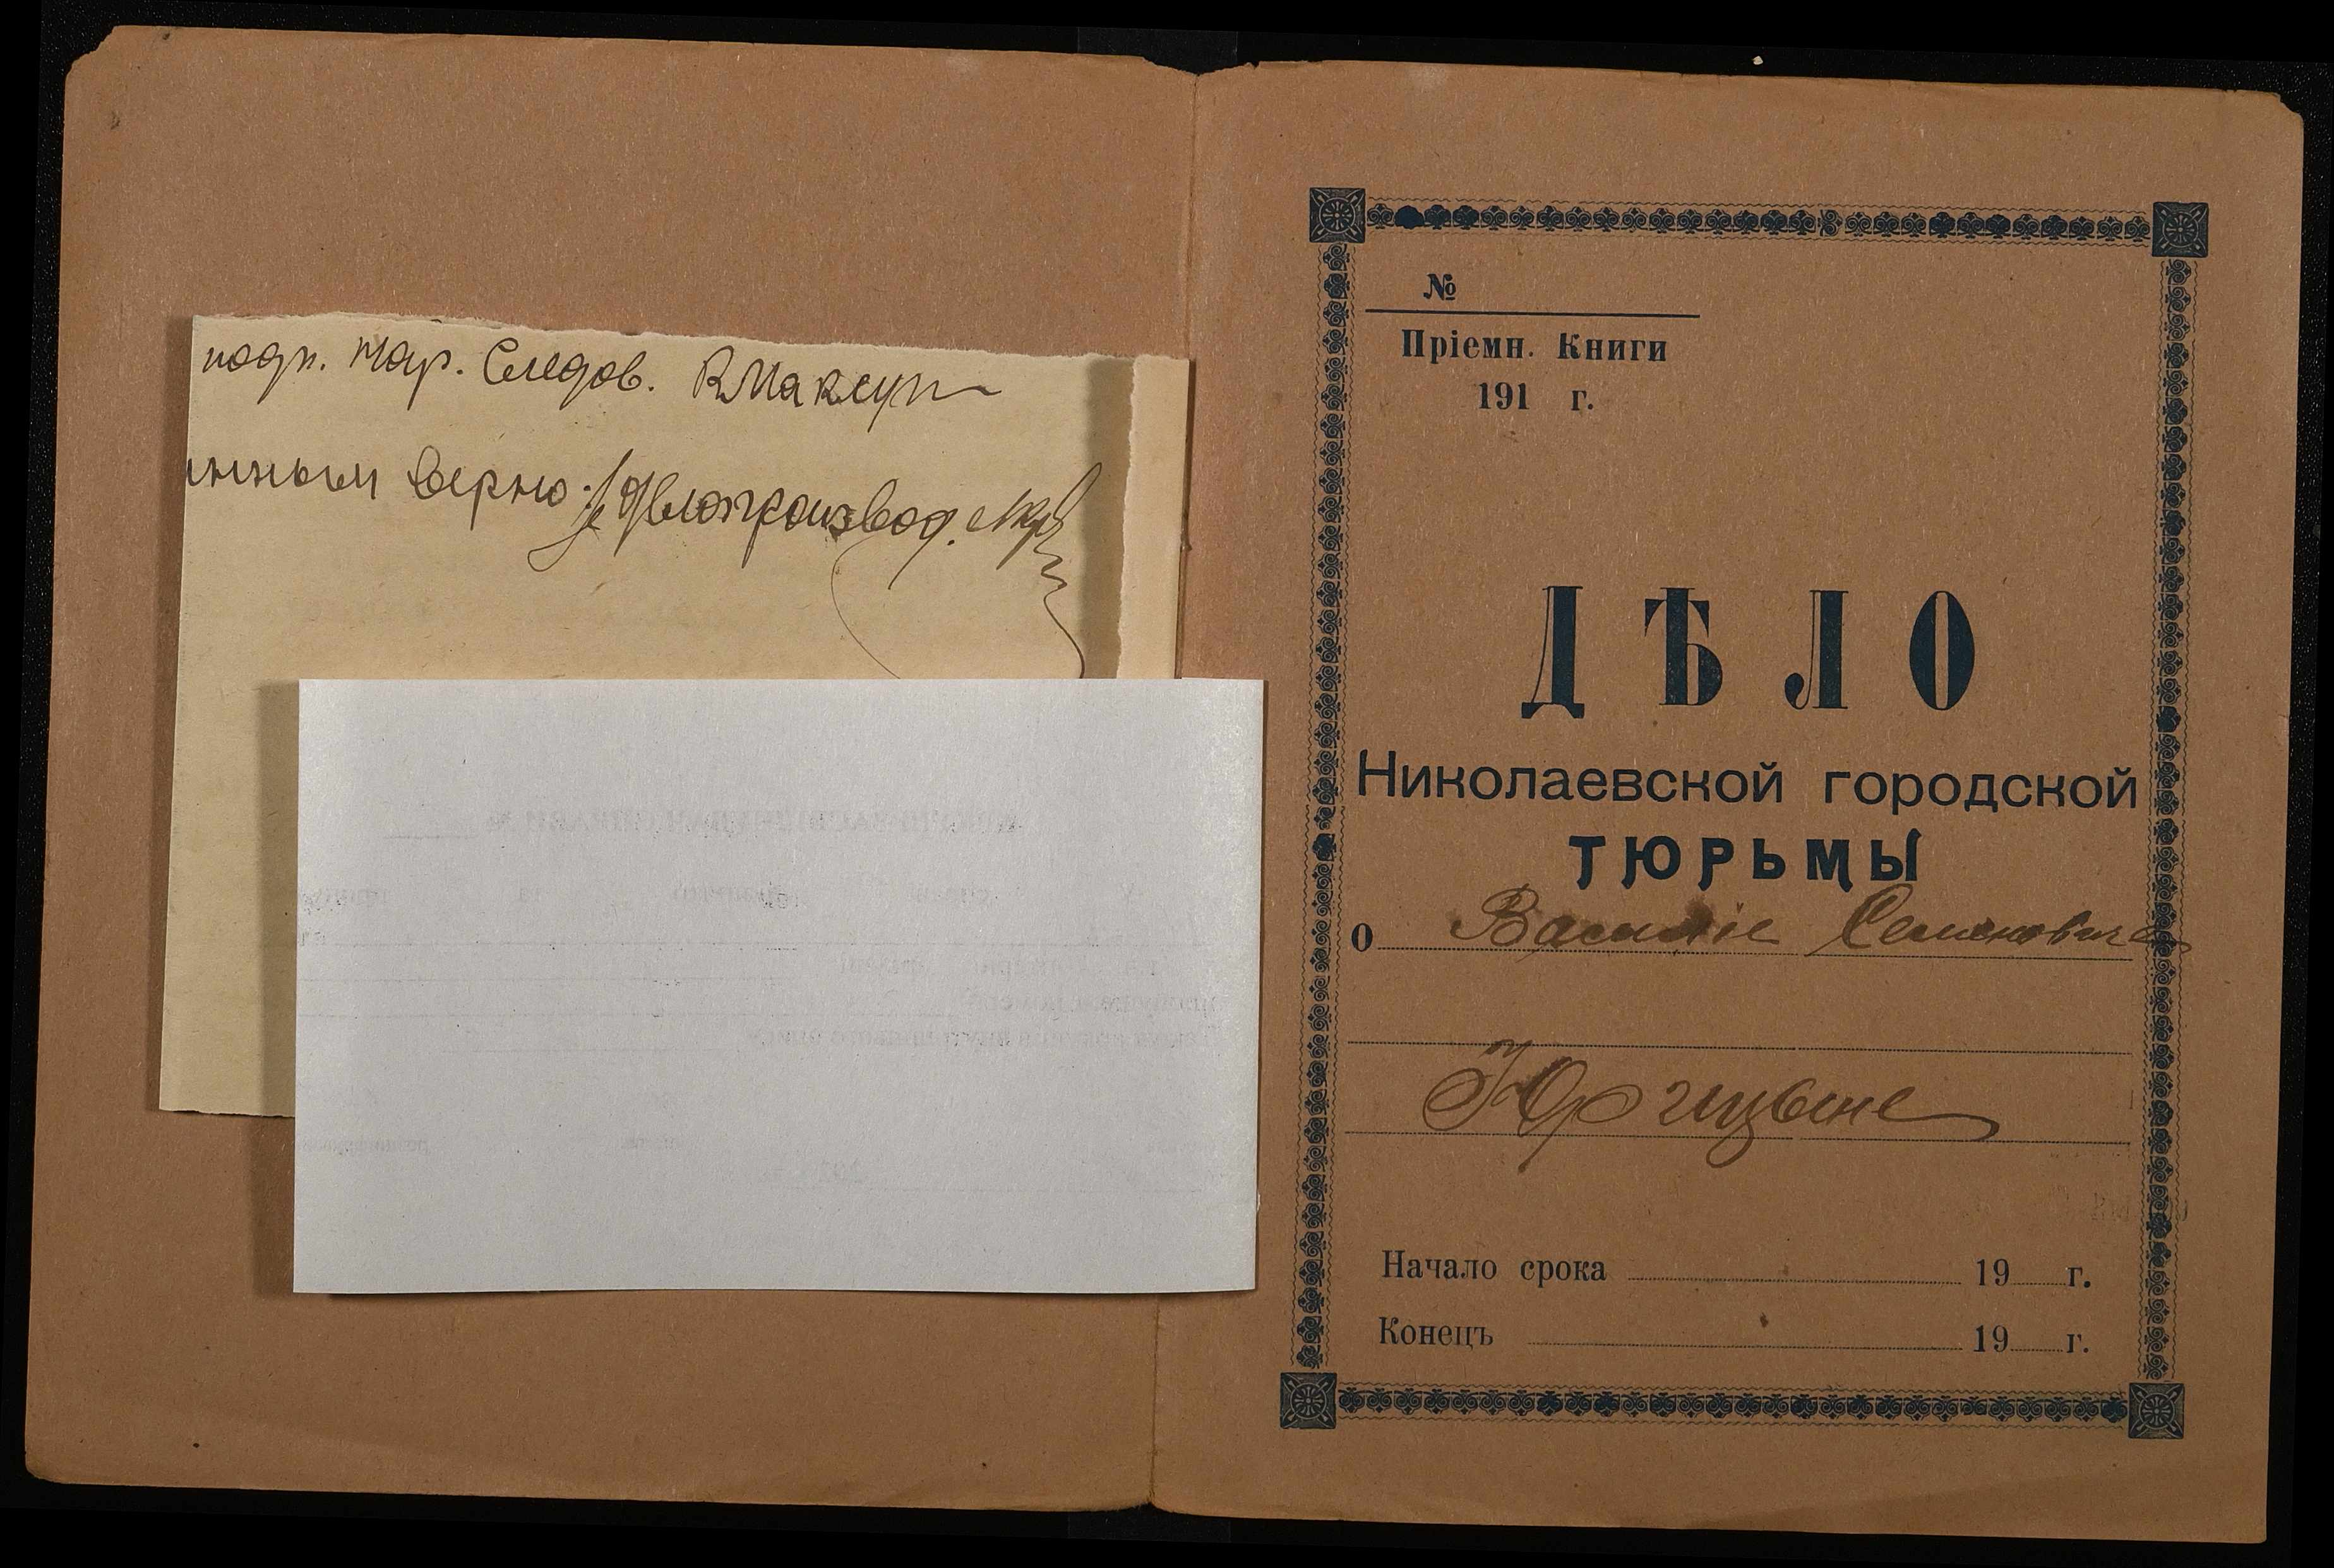 подп. Нар. Следов. ВМаксут
инным верно: Делопроизвод.
№
Пріемн. Книги
191 г.
ДѢЛО
Николаевской городской
ТЮРЬМЫ
о Василіе Семеновиче
Юргицыне
Начало срока 19 г.
Конецъ 19 г.